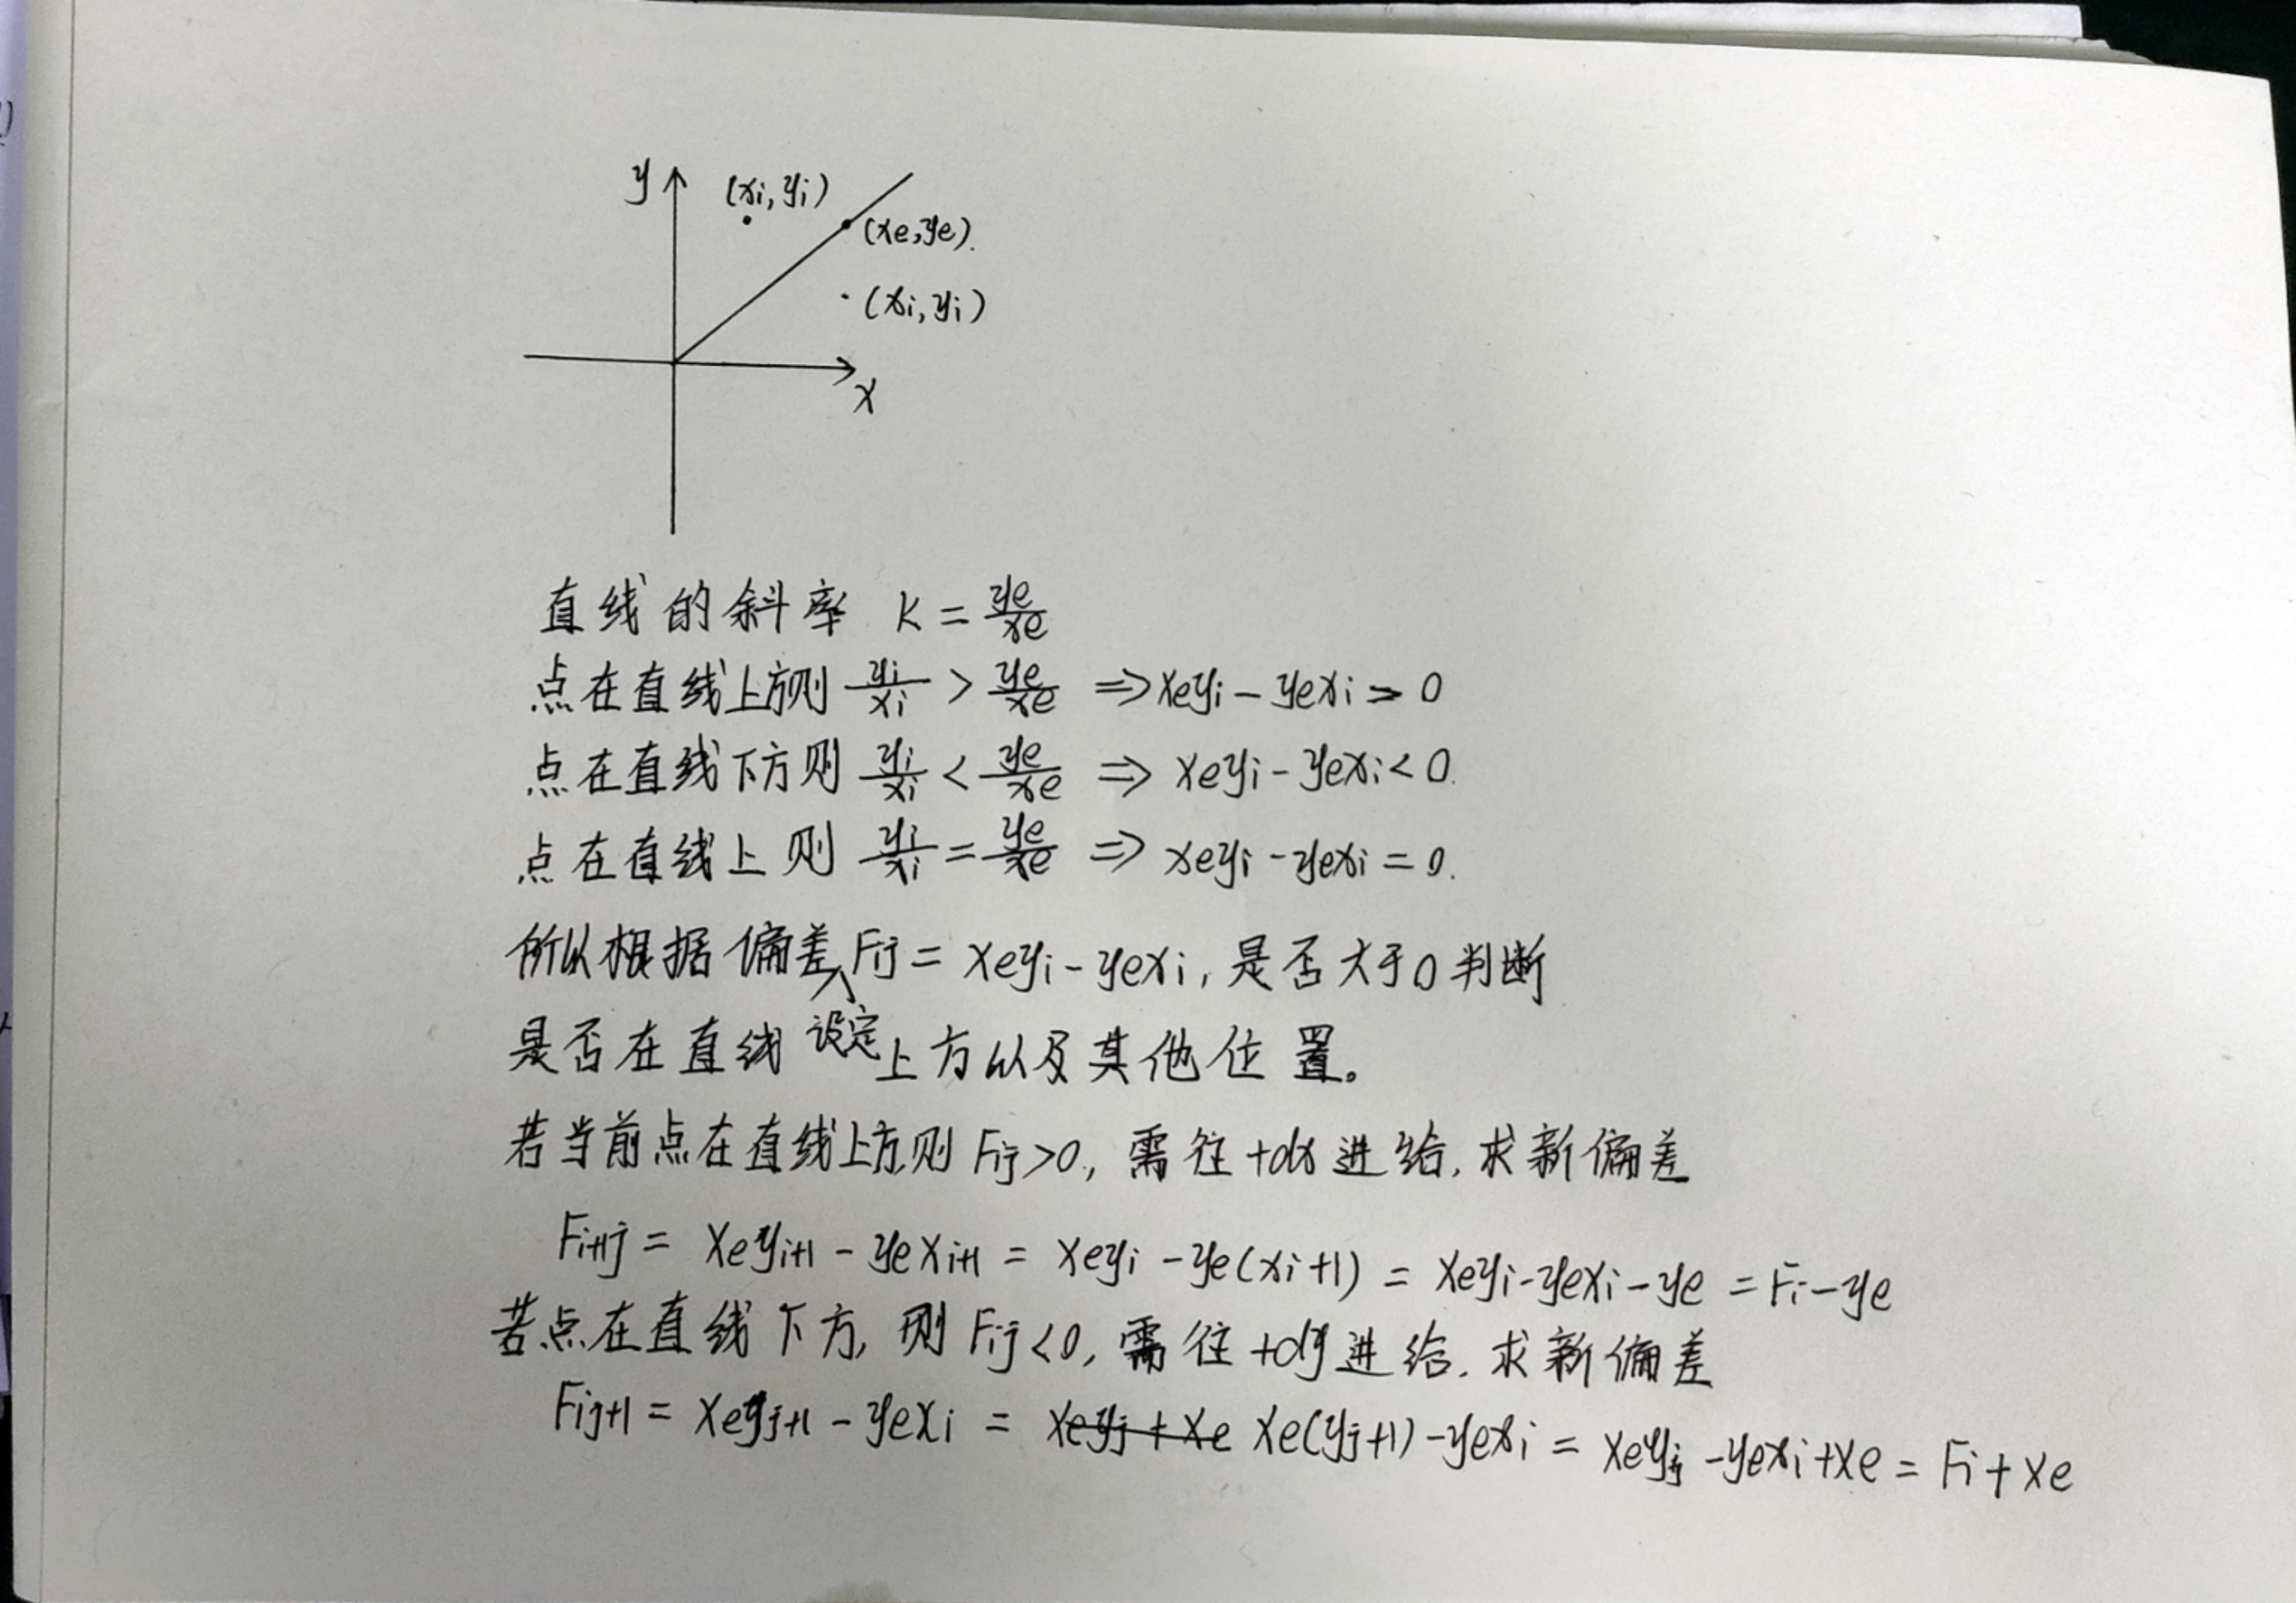 y
(xi, yi)
(xe, ye).
(xi, yi)
x
直线的斜率 K = ye/xe
点在直线上方则 yi/xi > ye/xe ⇒ xeyi - yexi > 0
点在直线下方则 yi/xi < ye/xe ⇒ xeyi - yexi < 0.
点在直线上则 yi/xi = ye/xe ⇒ xeyi - yexi = 0.
所以根据偏差设定Fij = xeyi - yexi, 是否大于0判断
是否在直线上方以及其他位置。
若当前点在直线上方,则 Fij > 0, 需往+dx进给. 求新偏差
Fi+1j = xeyi+1 - yexi+1 = xeyi - ye(xi+1) = xeyi - yexi - ye = Fi - ye
若点在直线下方, 则 Fij < 0, 需往+dy进给. 求新偏差
Fij+1 = xeyj+1 - yexi = xeyj + xe xe(yj+1) - yexi = xeyj - yexi + xe = Fi + xe